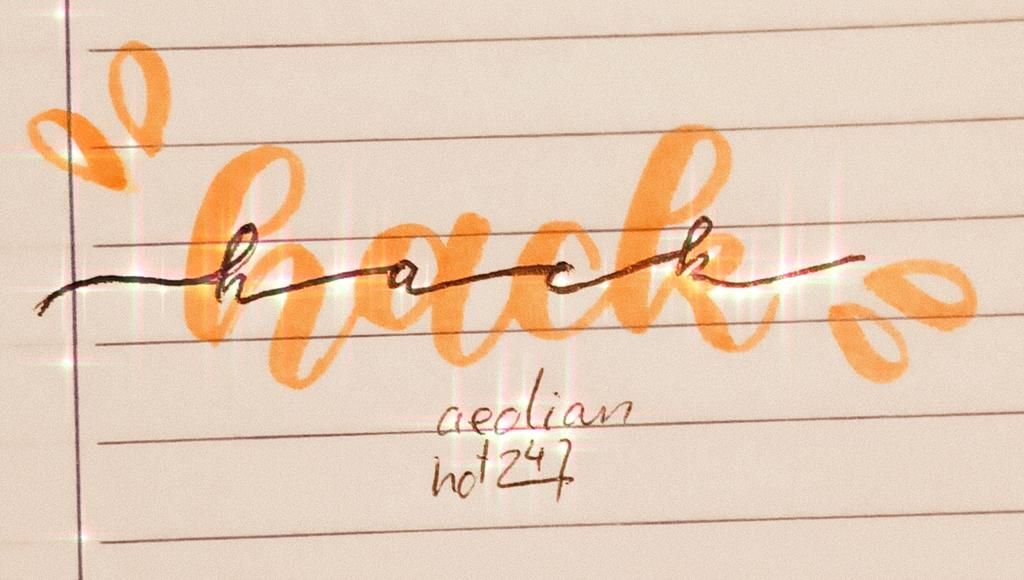 hack
hack
aeolian
not247